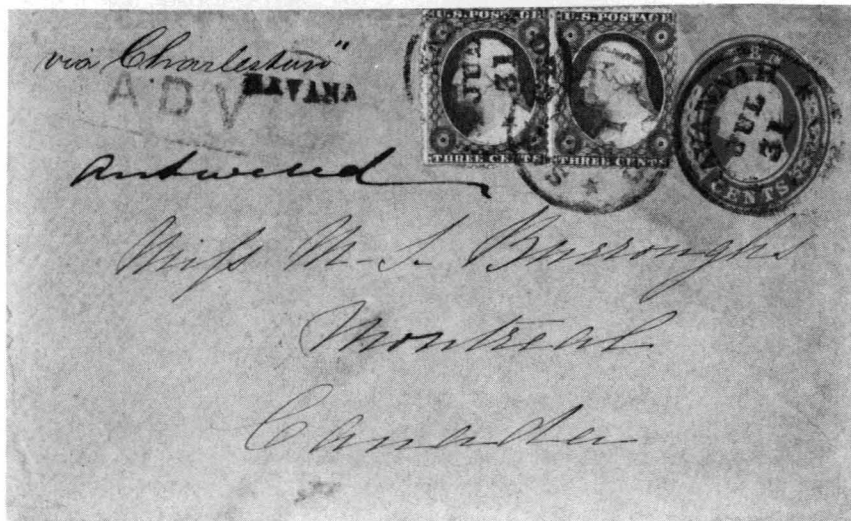 via Charleston"
ADV
HAVANA
U.S. POSTAGE
JUL
31
THREE CENTS
U.S. POSTAGE
THREE CENTS
SAVANNAH
JUL
31
CENTS
answered
Miss M. S. Burroughs
Montreal
Canada